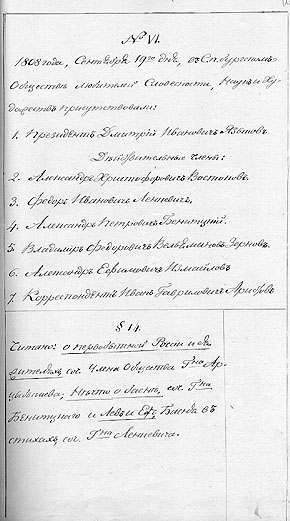 № VI.
1808 года, Сентября 19го дня, въ С.п.бургскомъ
Обществѣ любителей Словесности, Наукъ и Ху-
дожествъ присутствовали:
1. Президентъ Дмитрій Ивановичъ Языковъ
Дѣйствительные члены:
2. Александръ Христофоровичъ Востоковъ.
3. Федоръ Ивановичъ Ленкевичъ,
4. Александръ Петровичъ Бенитцкій.
5. Владиміръ Федоровичъ Вельяминовъ Зерновъ.
6. Александръ Ефимовичъ Измайловъ
7. Корреспондентъ Иванъ Гавриловичъ Аристовъ
§ 14.
Читано: о первобытной Россіи и ея
жителяхъ соч. Члена Общества Гна Ар-
цыбышева; Нѣчто о баснѣ, соч. Гна
Бенитцкого и Левъ и Басня въ
стихахъ соч. Гна Ленкевича.